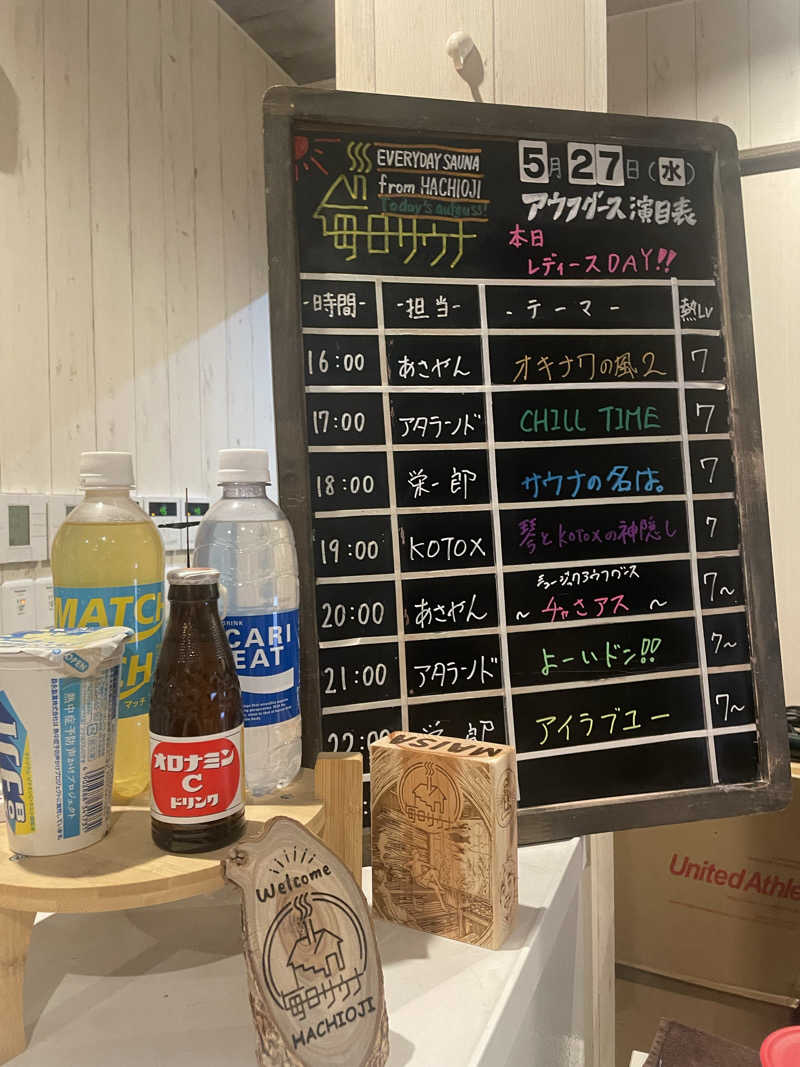 EVERYDAY SAUNA
from HACHIOJI
Today's aufguss!
毎日サウナ
5月27日(水)
アウフグース演目表
本日
レディースDAY!!
-時間- -担当- -テーマ- 熱Lv
16:00 あさやん オキナワの風2 7
17:00 アタランド CHILL TIME 7
18:00 栄一郎 サウナの名は。 7
19:00 KOTOX 琴とKOTOXの神隠し 7
20:00 あさやん ミュージックアウフグース 7~
~ チャさアス ~
21:00 アタランド よーいドン!! 7~
22:00 栄一郎 アイラブユー 7~
MATCH
MATCH
マッチ
DRINK
CARI
EAT
OPEN
熱中症予防声かけプロジェクト
オロナミン
C
ドリンク
MAISA
毎日サウナ
Welcome
毎日サウナ
HACHIOJI
United Athle